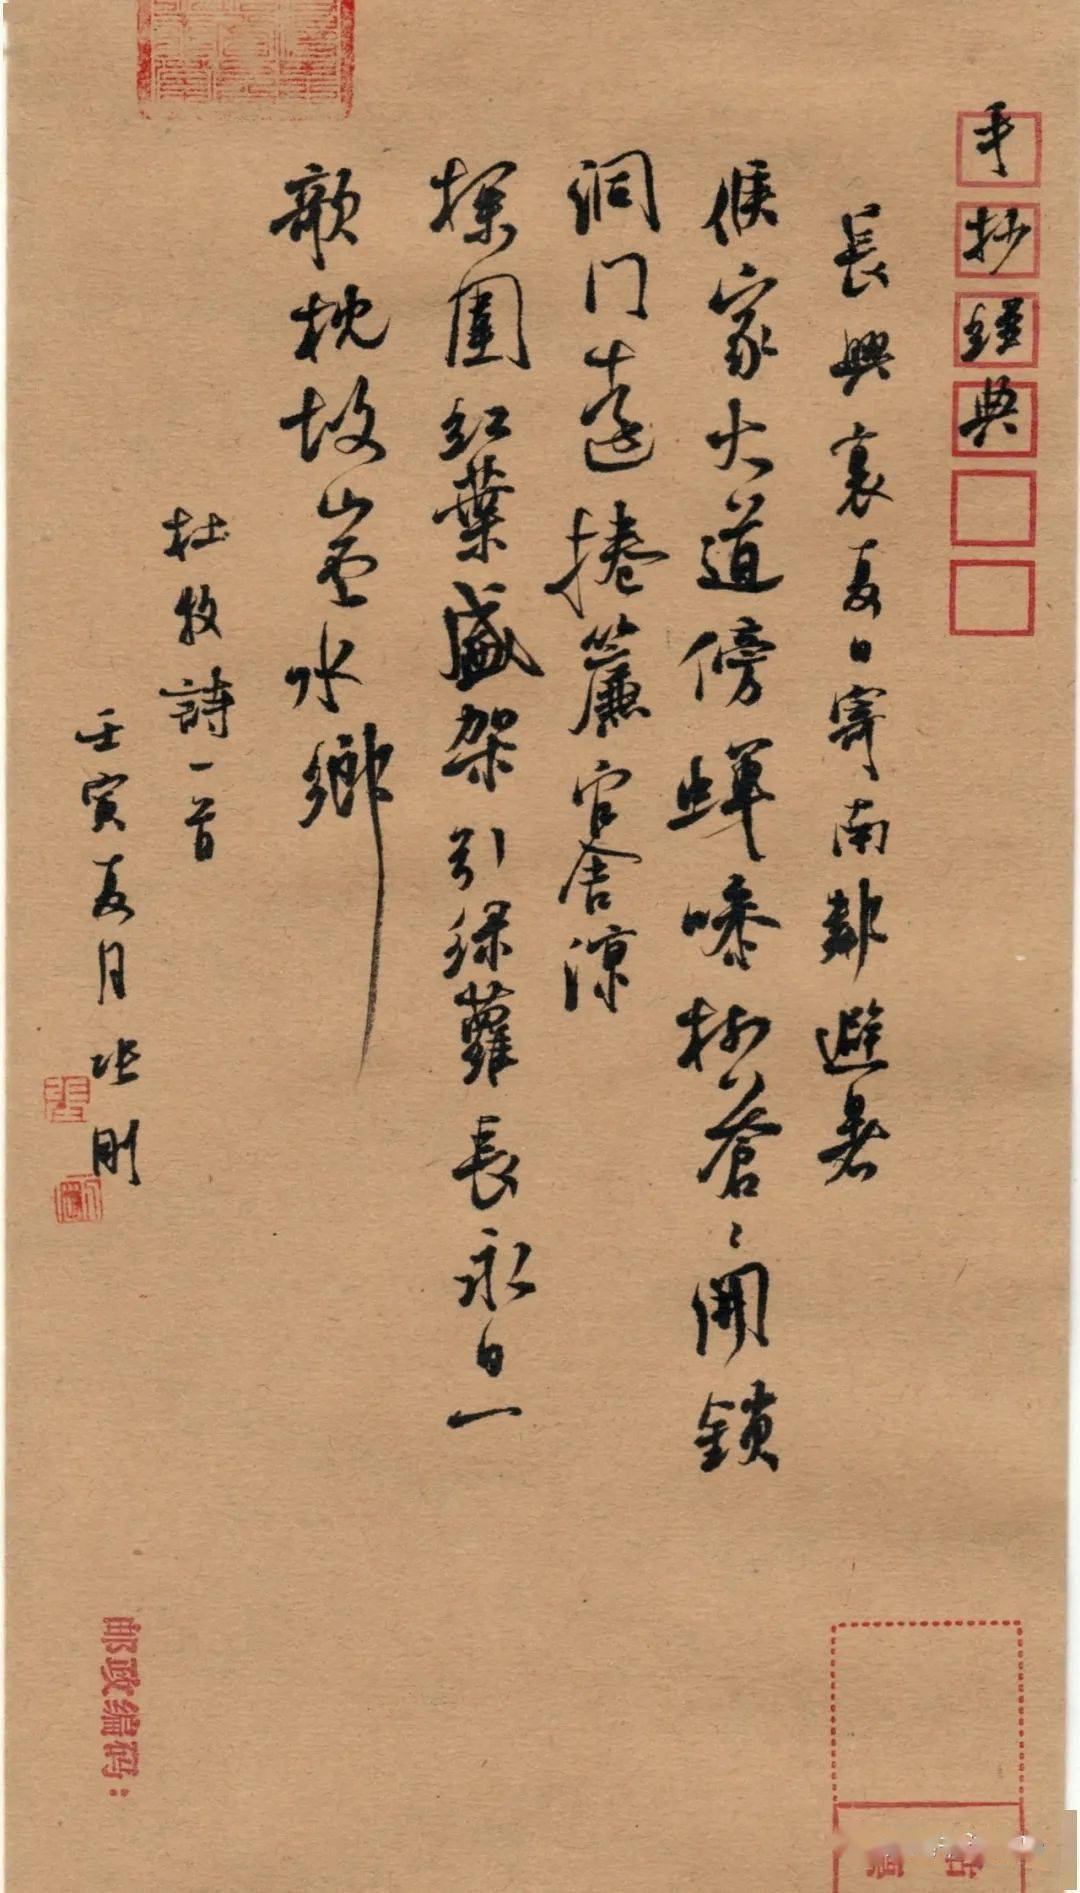 手抄經典
長興裏夏日寄南鄰避暑
侯家大道傍蟬噪樹蒼〻開鎖
洞门遠捲簾官舍涼
圍红葉盛架引緑蘿長永日一
欹枕故山雲水鄉
杜牧詩一首
壬寅夏月张刚
邮政编码：